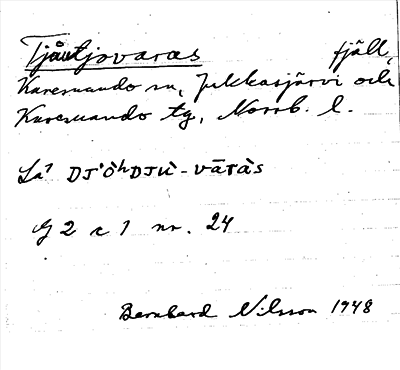 Tjåutjovaras fjäll,
Karesuando sn, Jukkasjärvi och
Karesuando tg, Norrb. l.
La⁷ DJ'ÒʰDJU̇-VāRàs
G 2 c 1 nr. 24
Bernhard Nilsson 1948